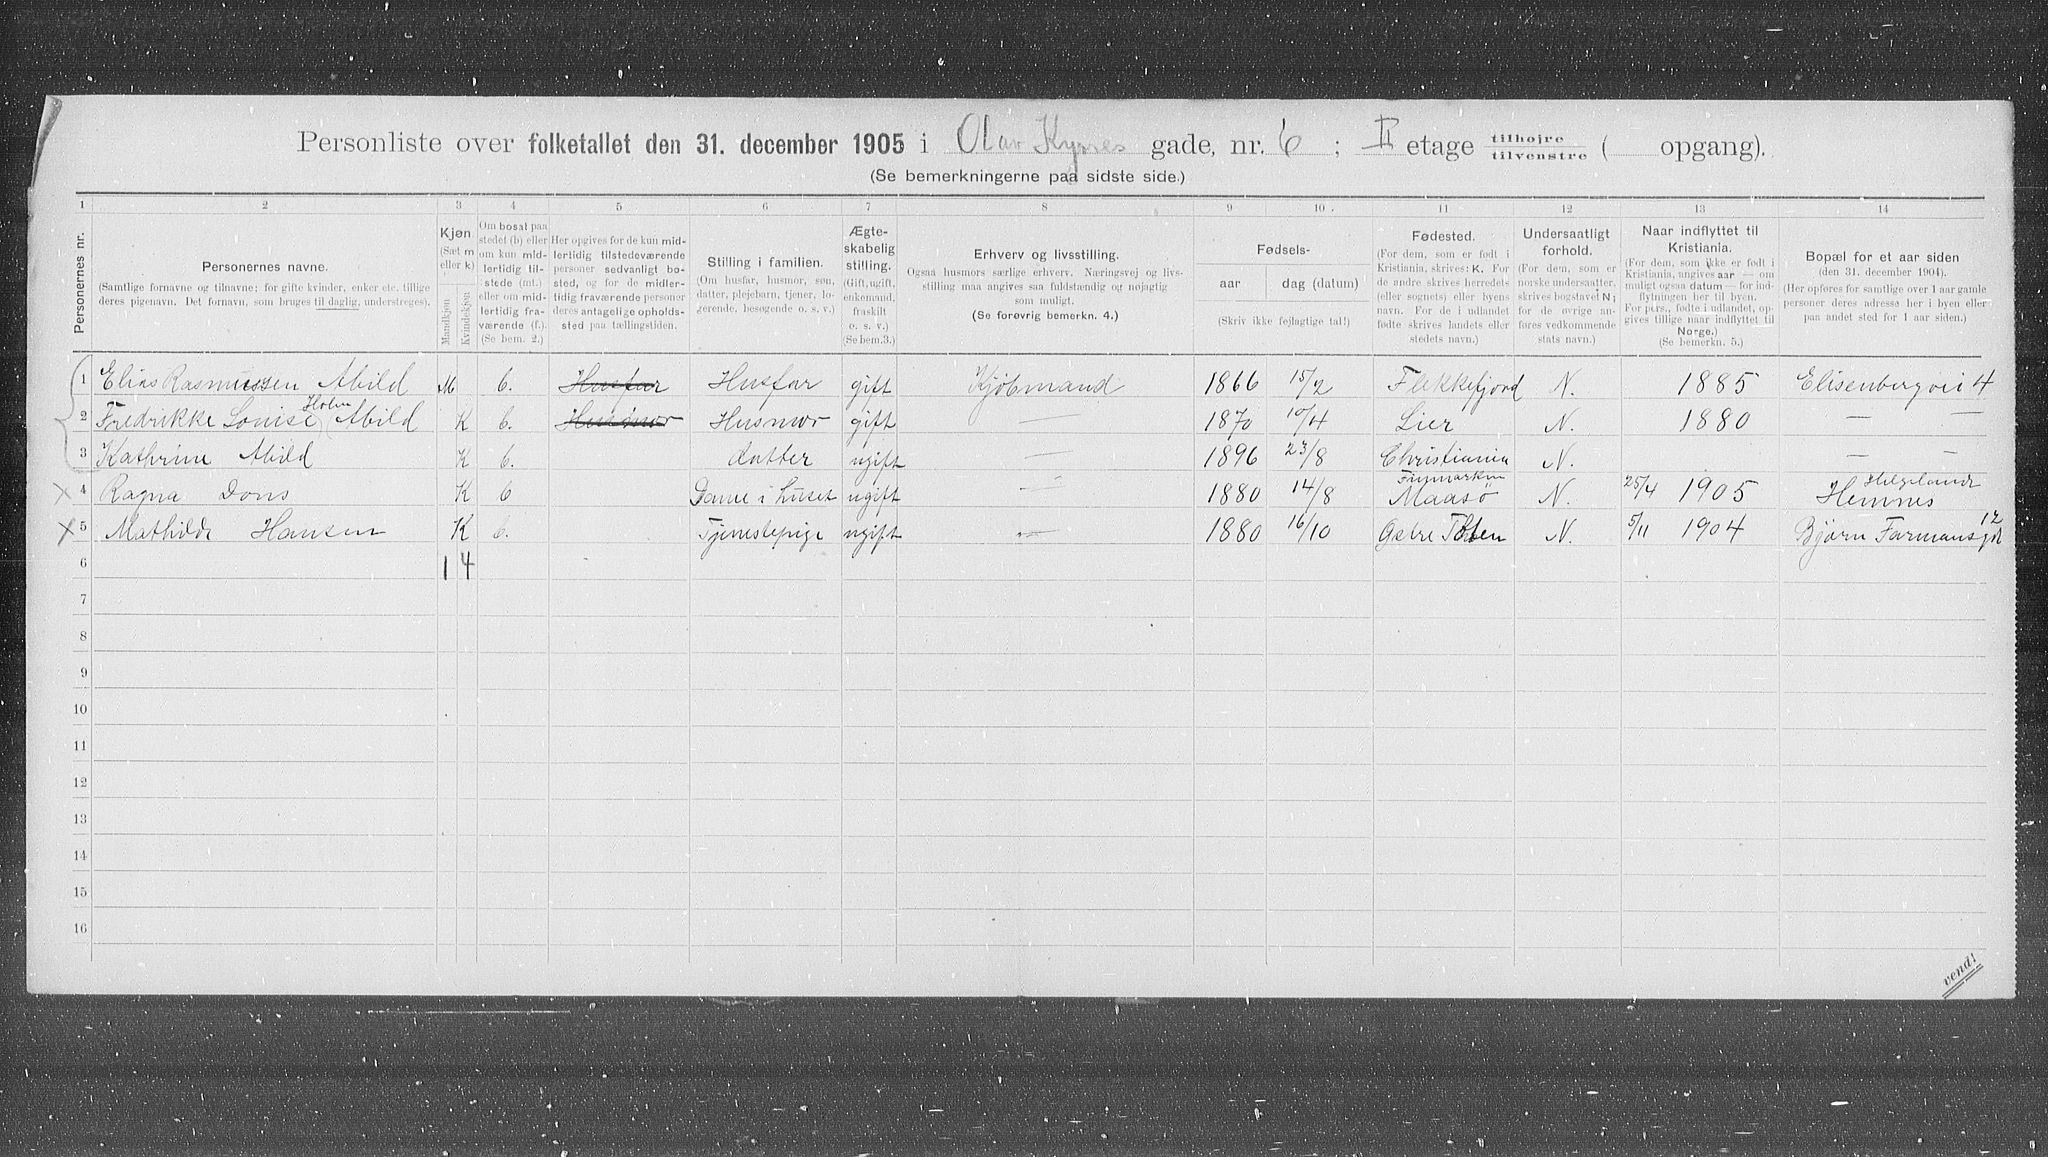 Personliste over folketallet den 31. december 1905 i Olav Kyrres gade, nr. 6 ; II etage tilhøjre tilvenstre ( opgang).
(Se bemerkningerne paa sidste side.)
1 2 3 4 5 6 7 8 9 10 11 12 13 14
Personernes nr.
Personernes navne.
(Samtlige fornavne og tilnavne; for gifte kvinder, enker etc. tillige deres pigenavn. Det fornavn, som bruges til daglig, understreges).
Kjøn. (Sæt m eller k) Mandkjøn Kvindekjøn
Om bosat paa stedet (b) eller om kun midlertidig tilstede (mt.) eller om midlertidig fraværende (f.). (Se bem. 2.)
Her opgives for de kun midlertidig tilstedeværende personer sedvanligt bosted, og for de midlertidig fraværende personer deres antagelige opholdssted paa tællingstiden.
Stilling i familien.
(Om husfar, husmor, søn, datter, plejebarn, tjener, logerende, besøgende o. s. v.)
Ægteskabelig stilling. (Gift, ugift, enkemand, fraskilt o. s. v.) (Se bem. 3.)
Erhverv og livsstilling.
Ogsaa husmors særlige erhverv. Næringsvej og livsstilling maa angives saa fuldstændig og nøjagtig som muligt.
(Se forøvrig bemerkn. 4.)
Fødsels-
aar dag (datum)
(Skriv ikke fejlagtige tal!)
Fødested.
(For dem, som er født i Kristiania, skrives: K. For de andre skrives herredets (eller sognets) eller byens navn. For de i udlandet fødte skrives landets eller stedets navn.)
Undersaatligt forhold.
(For dem, som er norske undersaatter, skrives bogstavet N; for de øvrige anføres vedkommende stats navn.)
Naar indflyttet til Kristiania.
(For dem, som ikke er født i Kristiania, angives aar — om muligt ogsaa datum — for indflytningen her til byen. For pers., fødte i udlandet, opgives tillige naar indflyttet til Norge.)
(Se bemerkn. 5.)
Bopæl for et aar siden
(den 31. december 1904).
(Her opføres for samtlige over 1 aar gamle personer deres adresse her i byen eller paa andet sted for 1 aar siden.)
1 Elias Rasmussen Abild M b. Husfar Husfar gift Kjøbmand 1866 15/2 Flekkefjord N. 1885 Elisenbergvei 4
2 Fredrikke Louise Holm Abild K b. Husmor Husmor gift — 1870 10/4 Lier N. 1880 — —
3 Kathrine Abild K b. datter ugift — 1896 23/8 Christiania N. — —
4 Ragna Dons K b Dame i huset ugift — 1880 14/8 Finmarken Maasø N. 25/4 1905 Helgeland Hemnes
5 Mathilde Hansen K b. Tjenestepige ugift — 1880 16/10 Østre Toten N. 5/11 1904 Bjørn Farmansgd 12
6 1 4
7
8
9
10
11
12
13
14
15
16
vend!